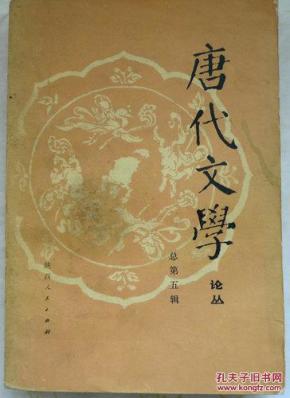 唐代文學
论丛
总第五辑
陕西人民出版社
孔夫子旧书网